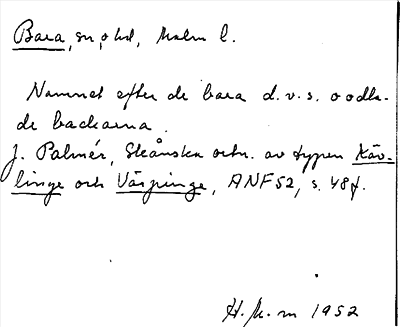 Bara, sn o hd, Malm l.
Namnet efter de bara d.v.s. oodla-
de backarna.
J. Palmér, Skånska ortn. av typen Käv-
linge och Värpinge, ANF 52, s. 48f.
H. K-m 1952